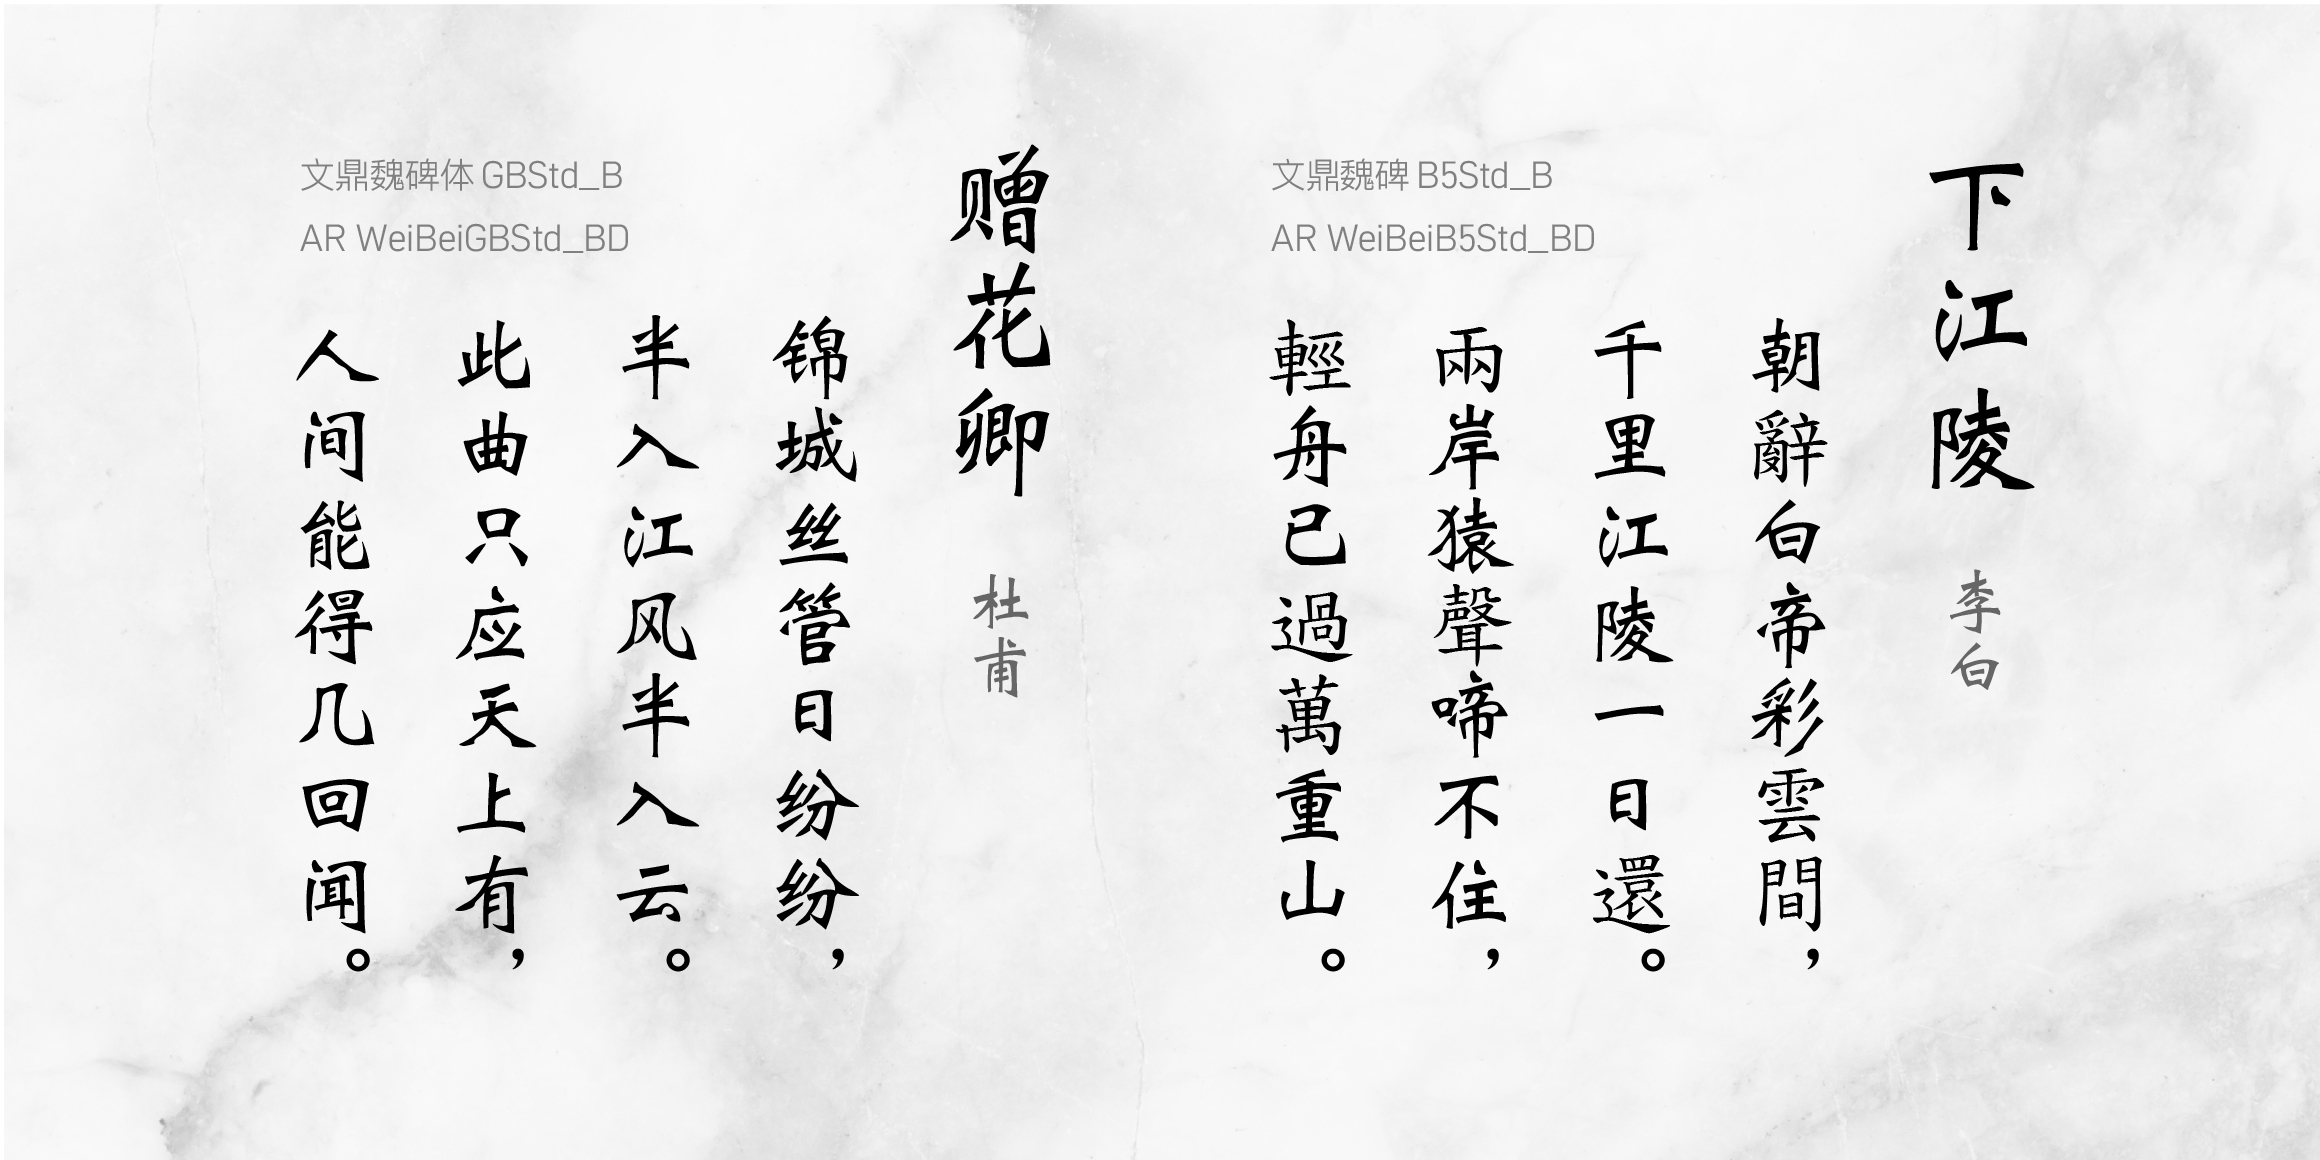 下江陵
李白
文鼎魏碑 B5Std_B
AR WeiBeiB5Std_BD
朝辭白帝彩雲間，
千里江陵一日還。
兩岸猿聲啼不住，
輕舟已過萬重山。
赠花卿
杜甫
文鼎魏碑体 GBStd_B
AR WeiBeiGBStd_BD
锦城丝管日纷纷，
半入江风半入云。
此曲只应天上有，
人间能得几回闻。